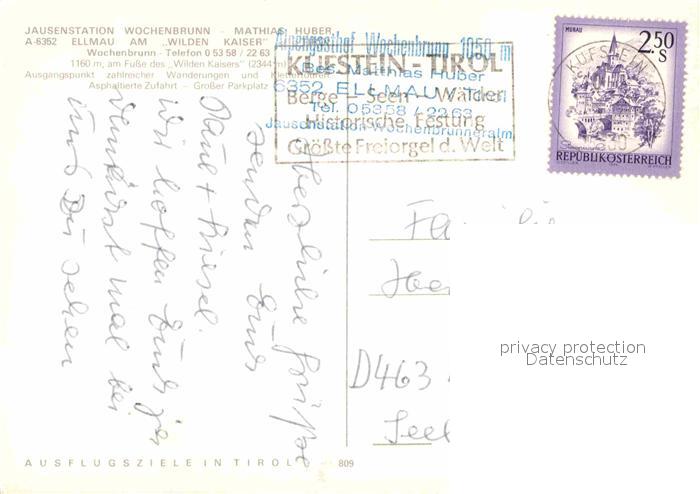 JAUSENSTATION WOCHENBRUNN - MATHIAS HUBER,
A-6352 ELLMAU AM „WILDEN KAISER"
Wochenbrunn - Telefon 0 53 58 / 22 63
1160 m, am Fuße des „Wilden Kaisers" (2344 m)
Ausgangspunkt zahlreicher Wanderungen und Klettertouren
Asphaltierte Zufahrt - Großer Parkplatz
Alpengasthof Wochenbrunn 1050 m
Bes. Matthias Huber
6352 ELLMAU / Tirol
Tel. 05358/2263
Jausenstation Wochenbrunneralm
KUFSTEIN-TIROL
Berge - Seen - Wälder
Historische Festung
Größte Freiorgel d. Welt
MURAU
2.50
S
REPUBLIK ÖSTERREICH
KUFSTEIN
Herzliche Grüße
senden Euch
Paul +
Wir hoffen Euch
mal bei
uns zu sehen
D463
privacy protection
Datenschutz
AUSFLUGSZIELE IN TIROL
809